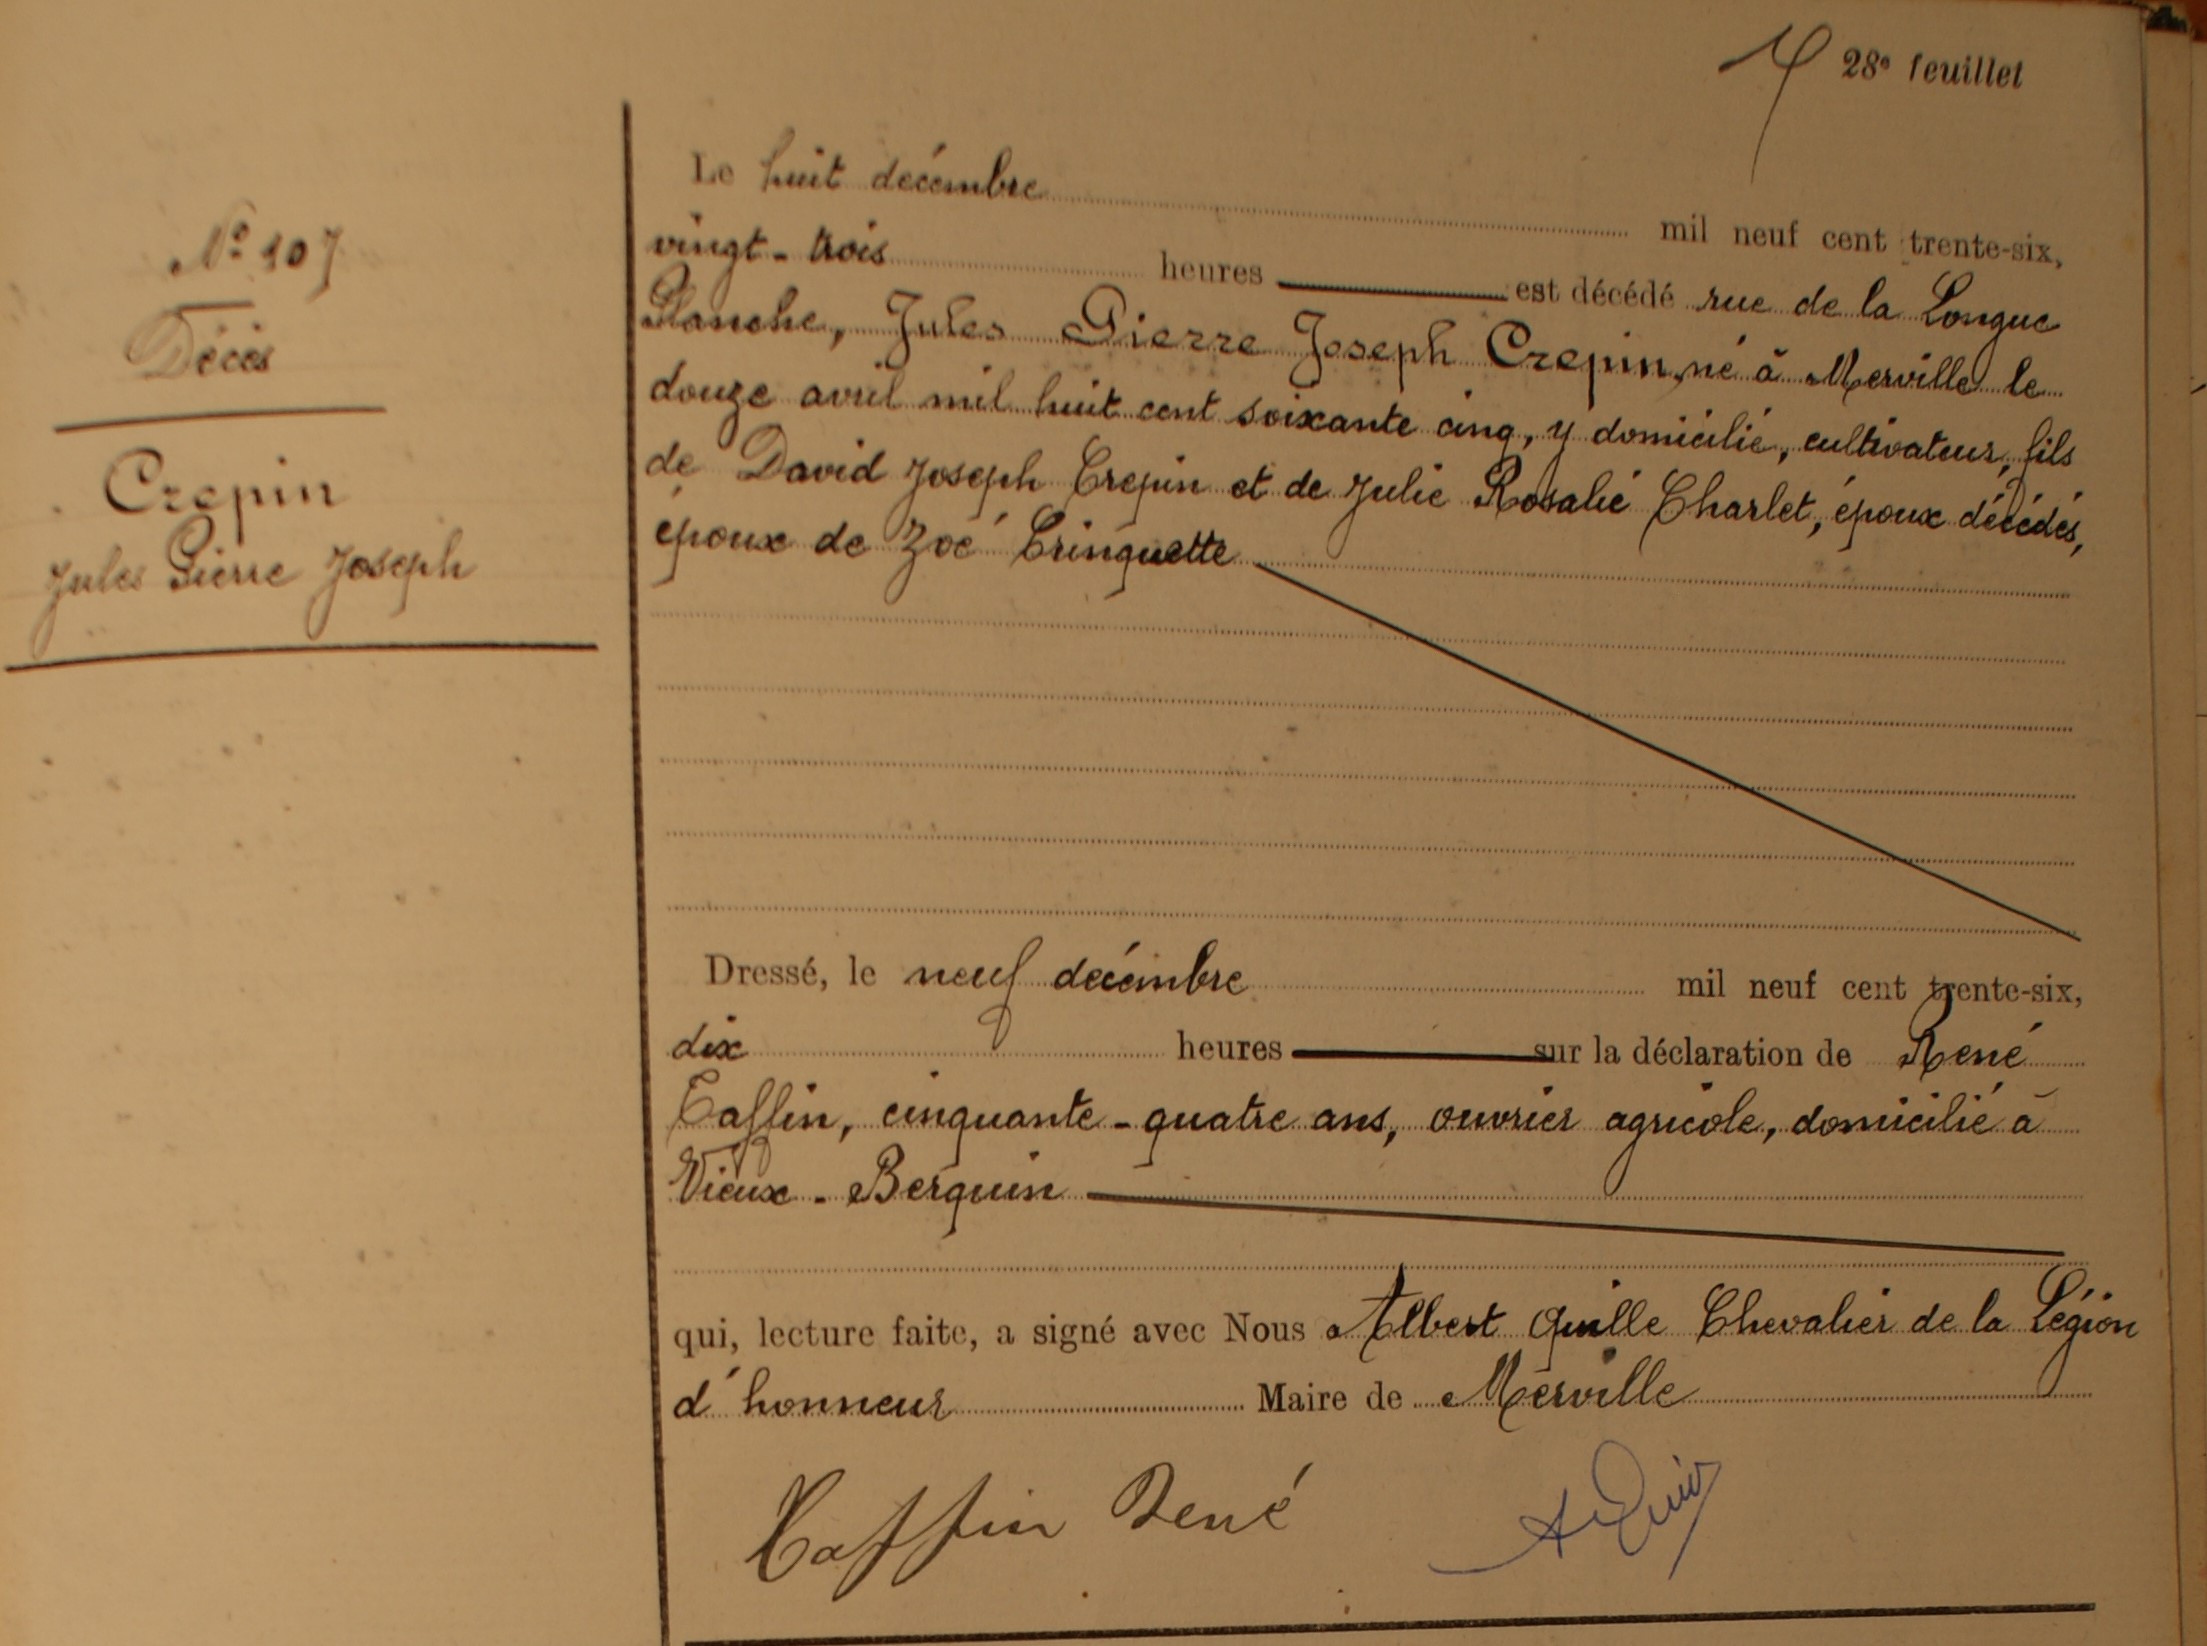 28e feuillet
N° 107
Décès
Crepin
Jules Pierre Joseph
Le huit décembre mil neuf cent trente-six,
vingt-trois heures est décédé rue de la Longue
Planche, Jules Pierre Joseph Crepin, né à Merville le
douze avril mil huit cent soixante cinq, y domicilié, cultivateur, fils
de David Joseph Crepin et de Julie Rosalie Charlet, époux décédés,
époux de Zoé Cringuette
Dressé, le neuf décembre mil neuf cent trente-six,
dix heures sur la déclaration de René
Taffin, cinquante-quatre ans, ouvrier agricole, domicilié à
Vieux-Berquin
qui, lecture faite, a signé avec Nous Albert Quille Chevalier de la Légion
d'honneur Maire de Merville
Taffin René